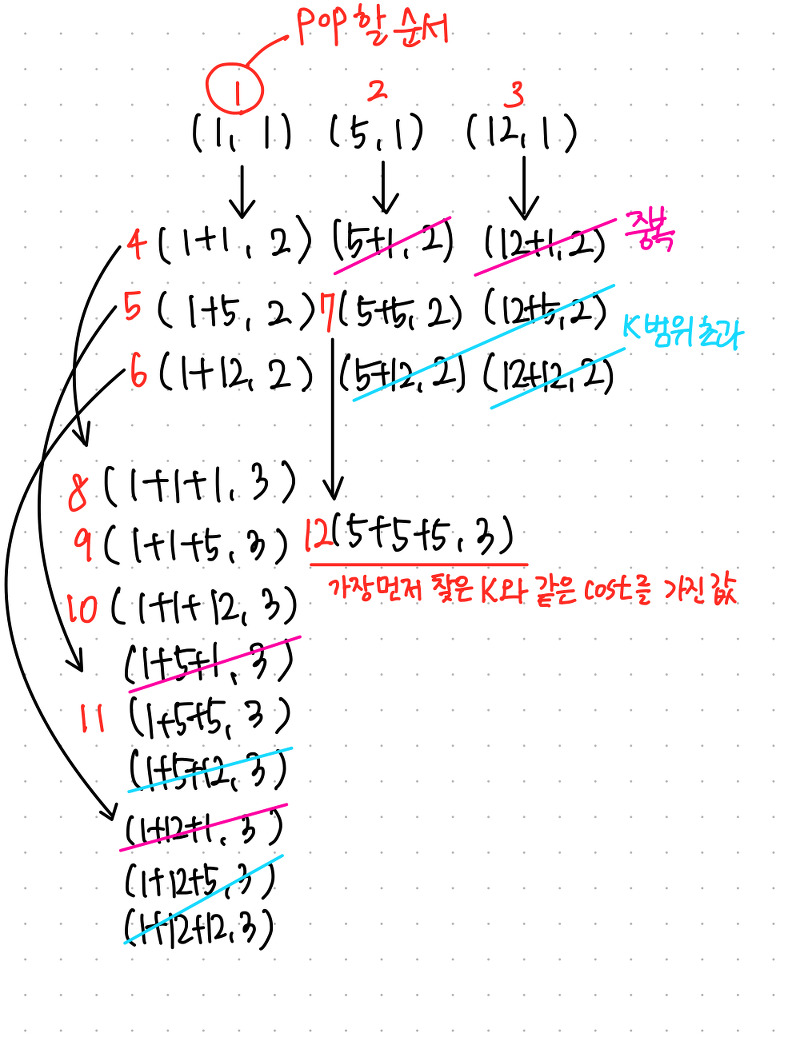 pop 할 순서
1 2 3
(1, 1) (5, 1) (12, 1)
4 (1+1, 2) (5+1, 2) (12+1, 2) 중복
5 (1+5, 2) 7 (5+5, 2) (12+5, 2) K 범위 초과
6 (1+12, 2) (5+12, 2) (12+12, 2)
8 (1+1+1, 3)
9 (1+1+5, 3) 12 (5+5+5, 3)
가장먼저 찾은 K와 같은 cost를 가진 값
10 (1+1+12, 3)
(1+5+1, 3)
11 (1+5+5, 3)
(1+5+12, 3)
(1+12+1, 3)
(1+12+5, 3)
(1+12+12, 3)